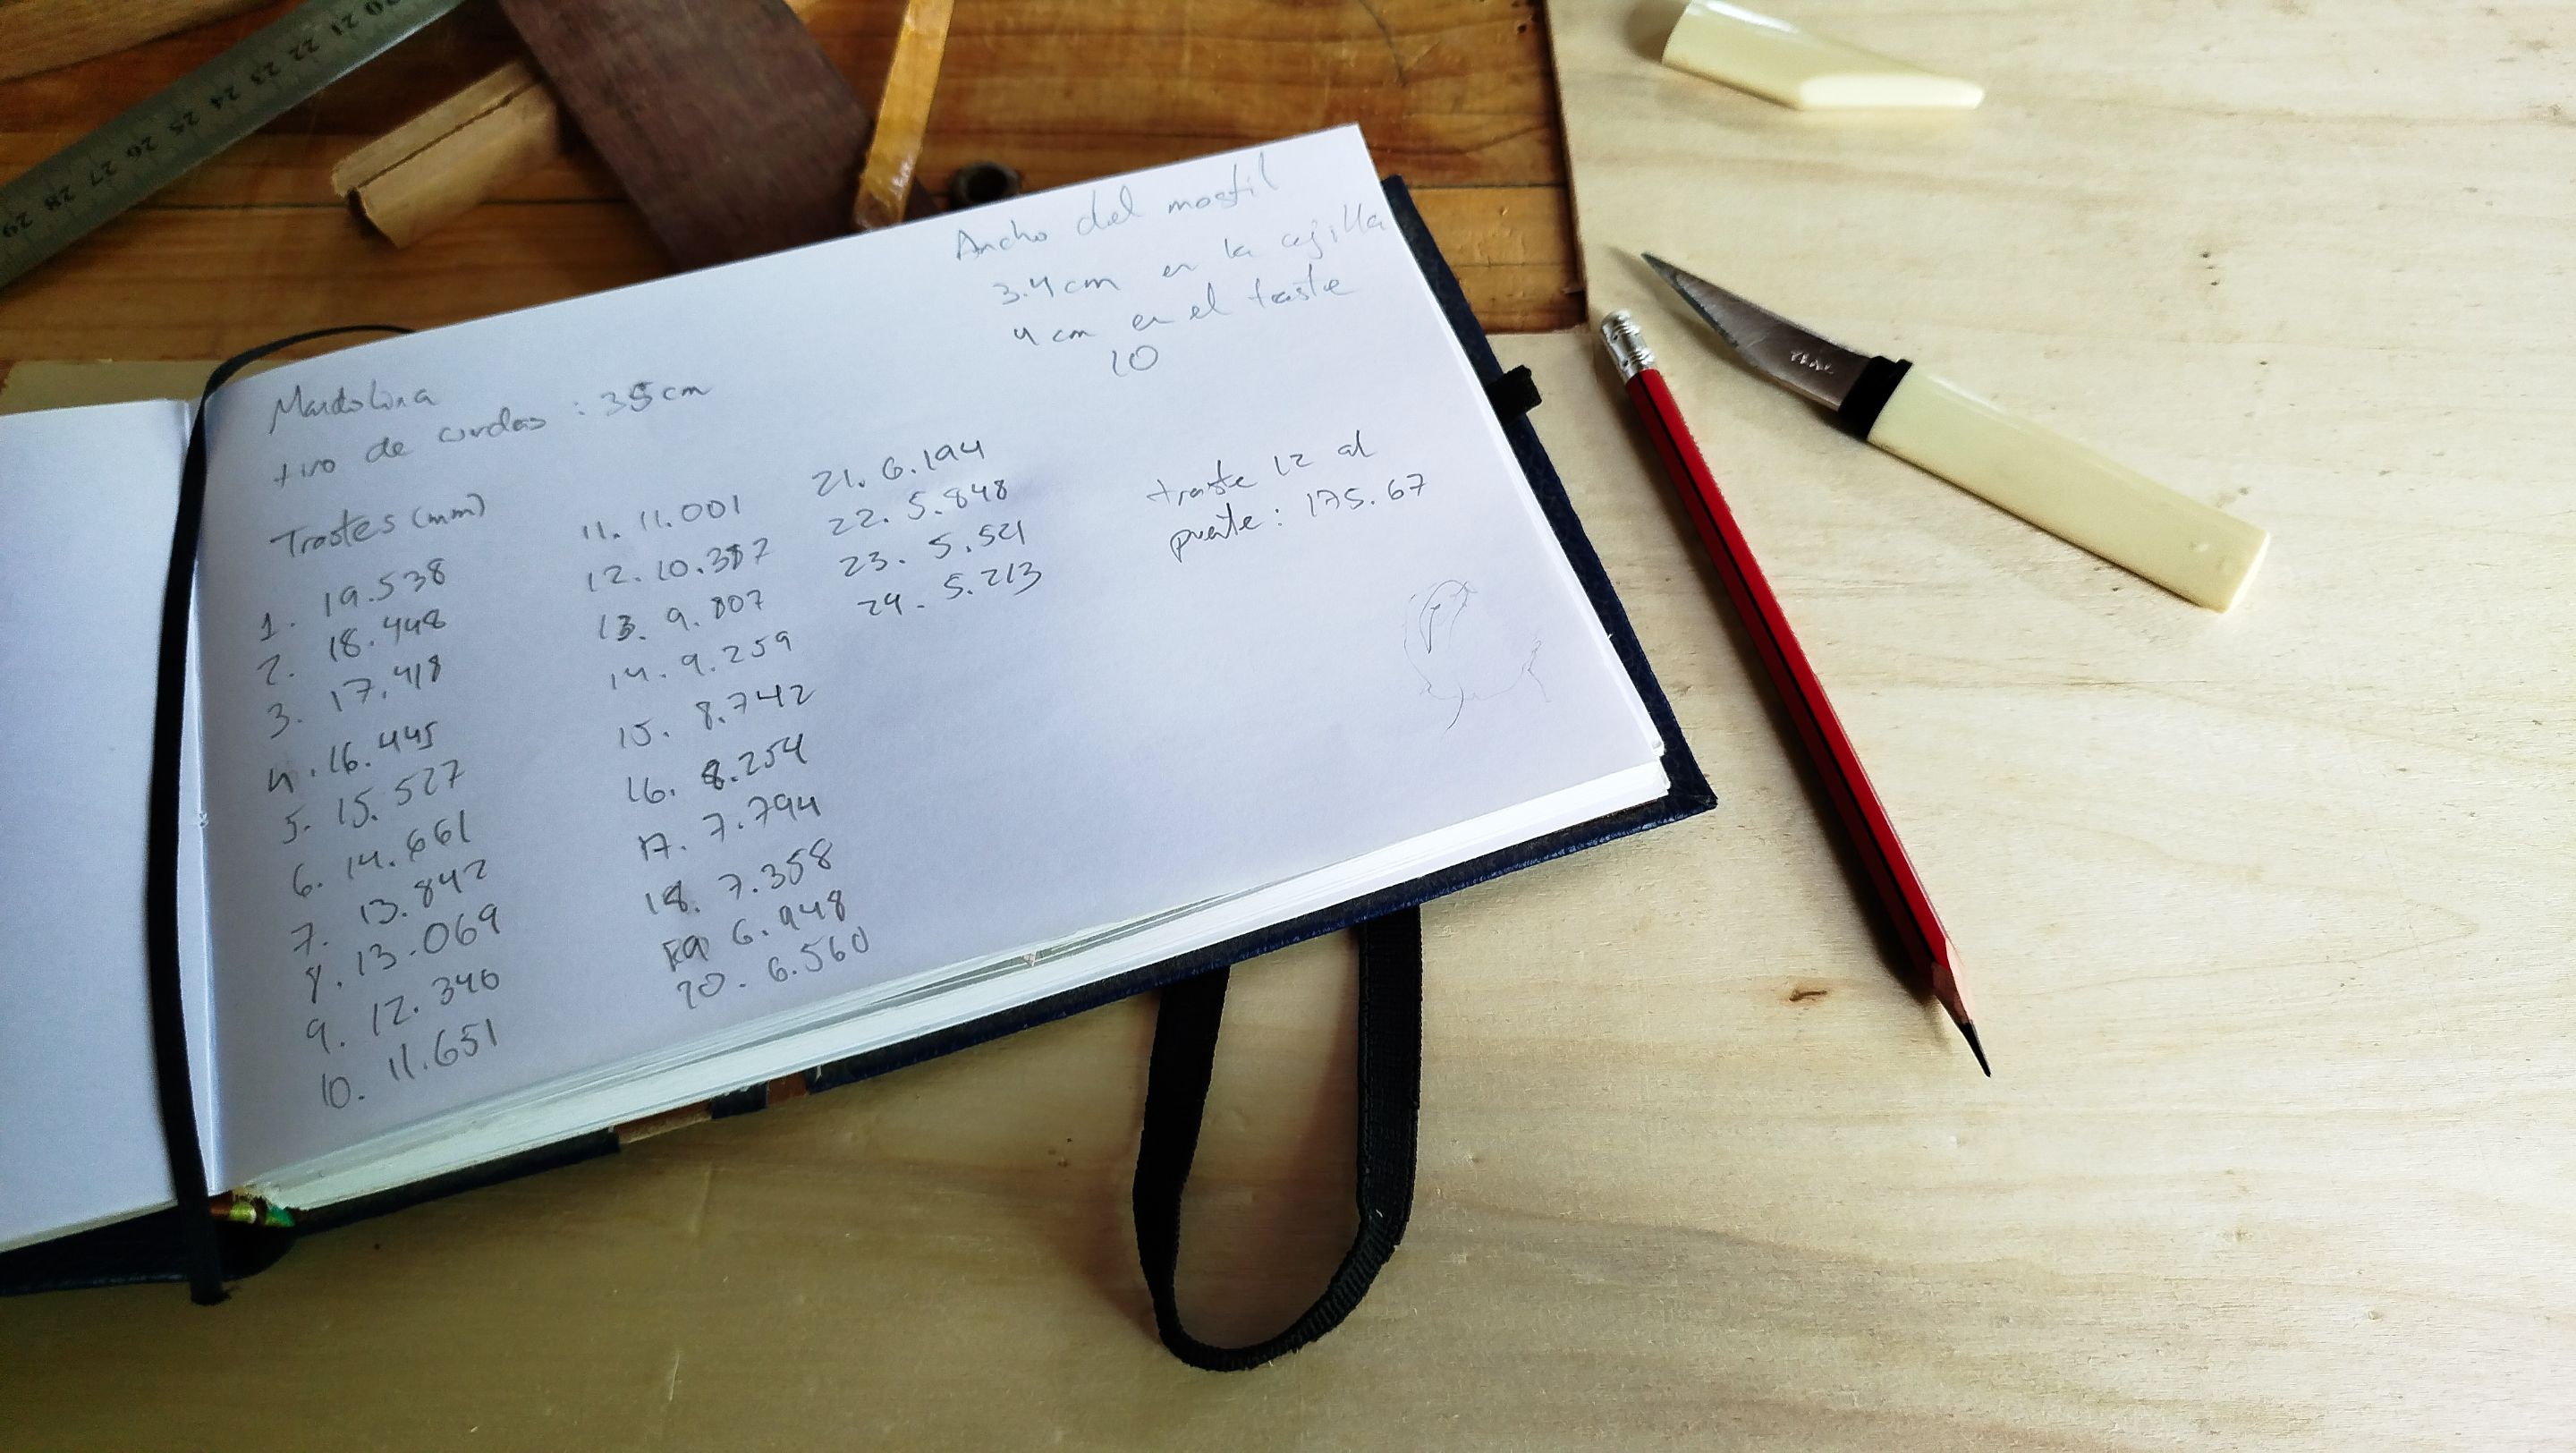 Ancho del mastil
3.4 cm en la cejilla
4 cm en el traste
10
Mandolina
tiro de cuerdas : 35 cm
Trastes (mm)
1. 19.538
2. 18.448
3. 17.418
4. 16.445
5. 15.527
6. 14.661
7. 13.842
8. 13.069
9. 12.340
10. 11.651
11. 11.001
12. 10.387
13. 9.807
14. 9.259
15. 8.742
16. 8.254
17. 7.794
18. 7.358
19 6.948
20. 6.560
21. 6.194
22. 5.848
23. 5.521
24. 5.213
traste 12 al
puente: 175.67
20 21 22 23 24 25 26 27 28 29